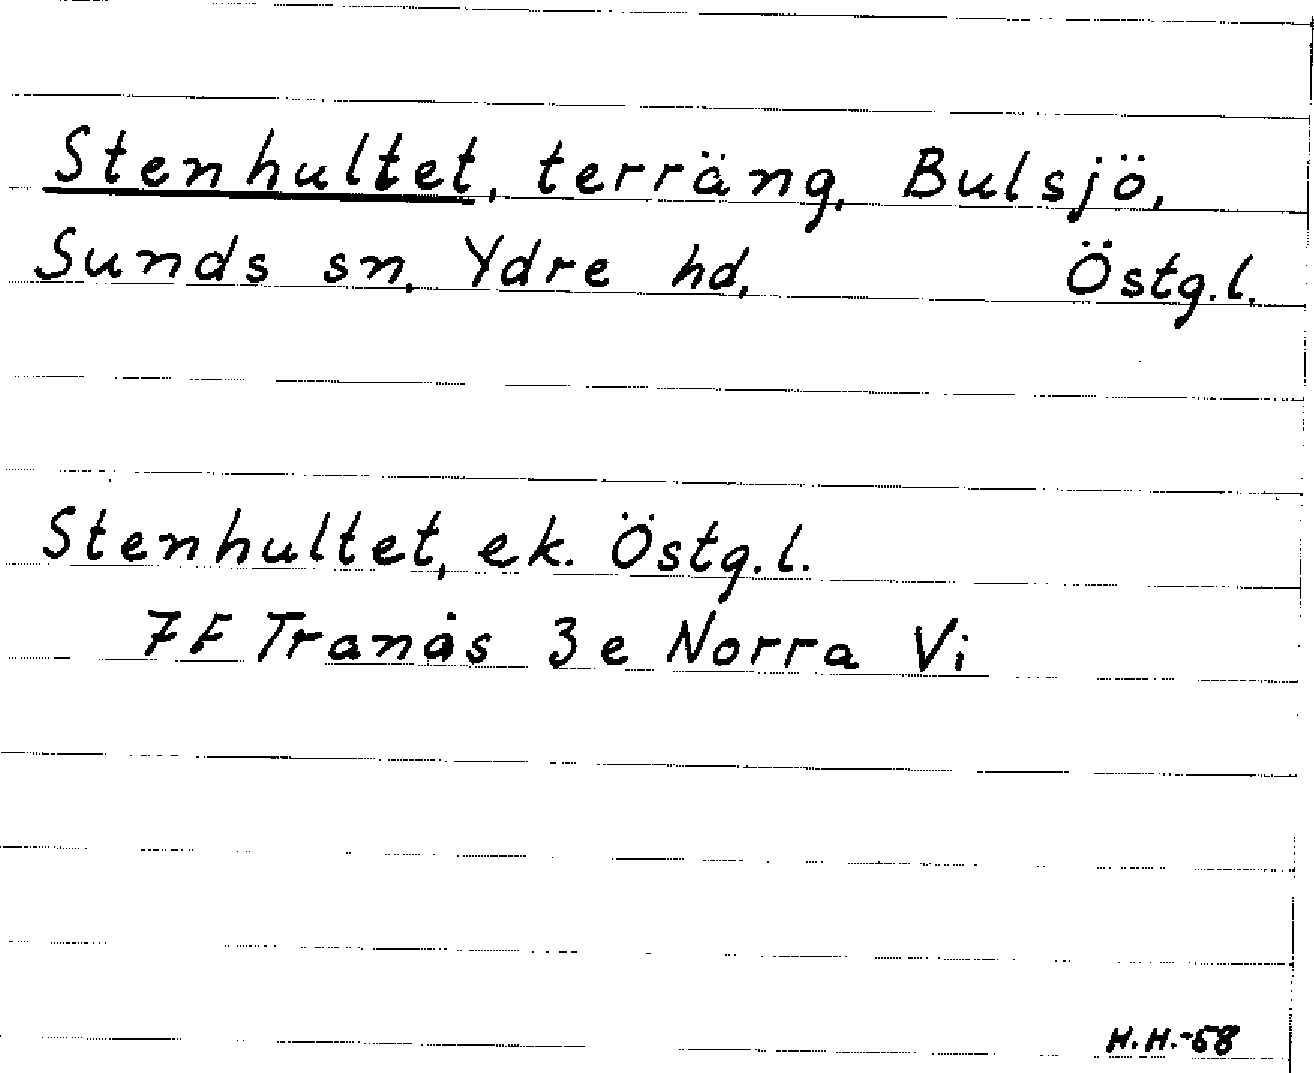 Stenhultet, terräng, Bulsjö,
Sunds sn, Ydre hd, Östg.l.
Stenhultet, ek. Östg.l.
7F Tranås 3e Norra Vi
H.H.-68